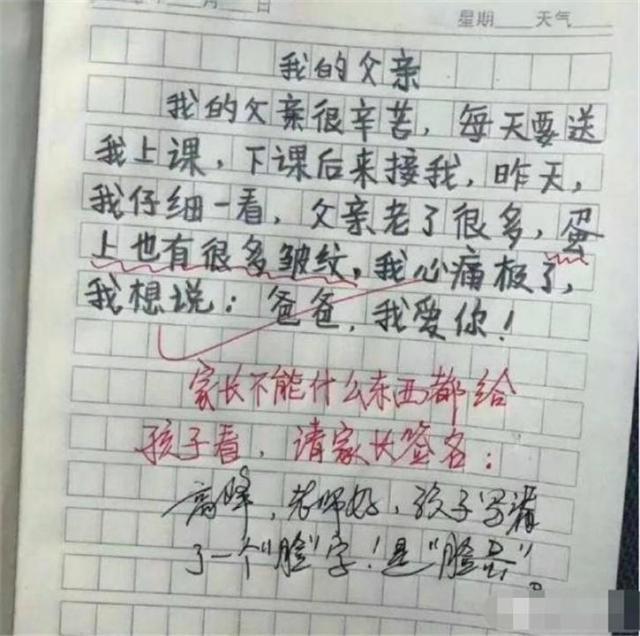 月 日
星期 天气
我的父亲
我的父亲很辛苦，每天要送
我上课，下课后来接我，昨天，
我仔细一看，父亲老了很多，蛋
上也有很多皱纹，我心痛极了，
我想说：爸爸，我爱你！
家长不能什么东西都给
孩子看，请家长签名：
高峰，老师好，孩子写漏
了一个“脸”字！是“脸蛋”。